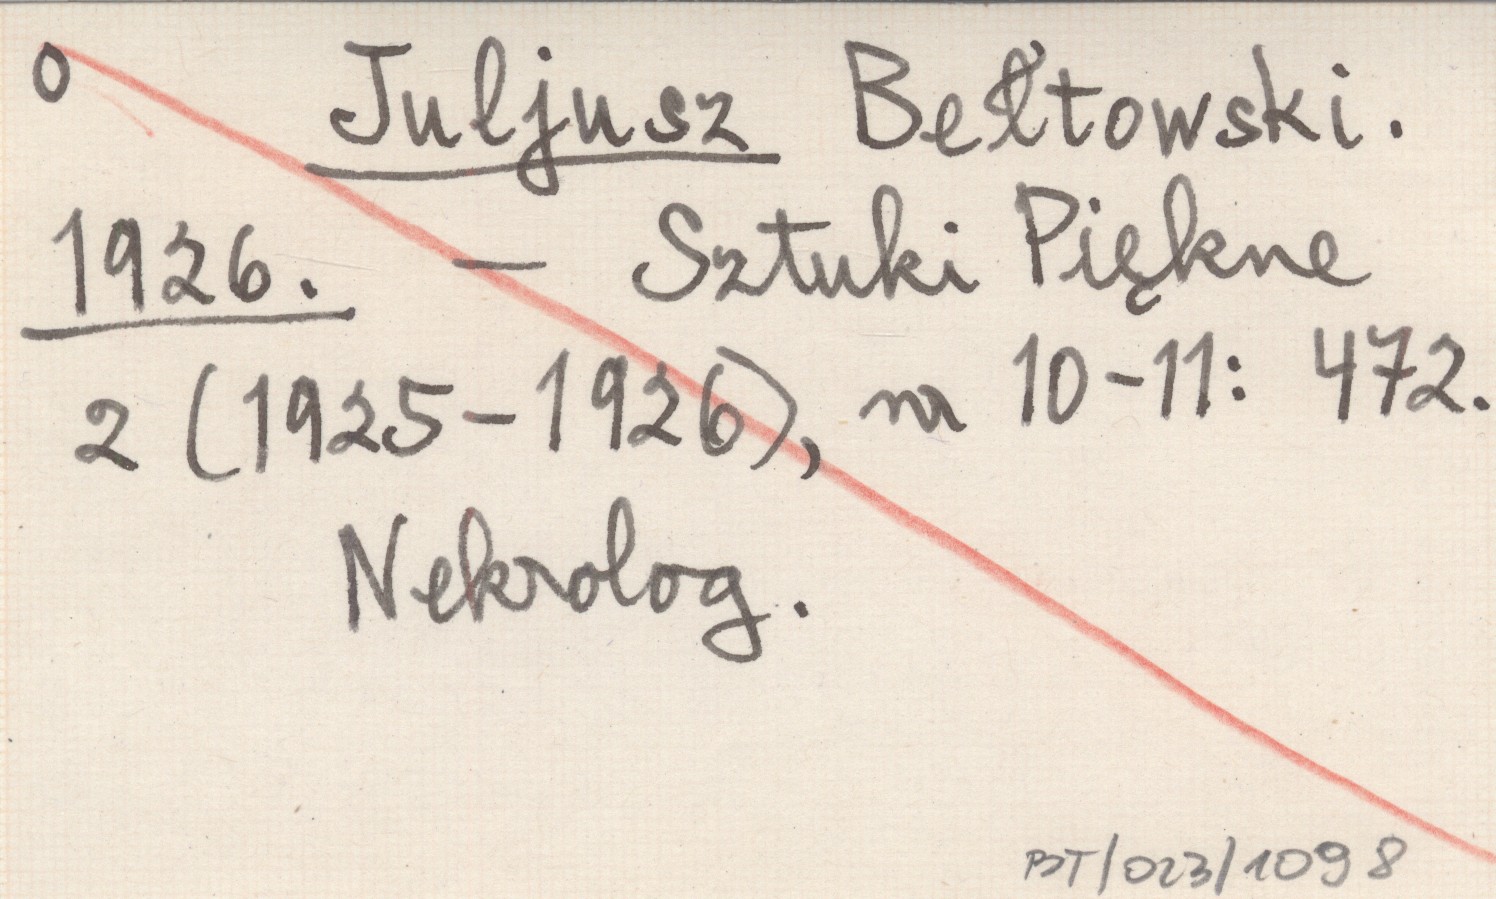 0 Juljusz Bełtowski.
1926. — Sztuki Piękne
2 (1925-1926), nr 10-11: 472.
Nekrolog.
PBT/023/1098